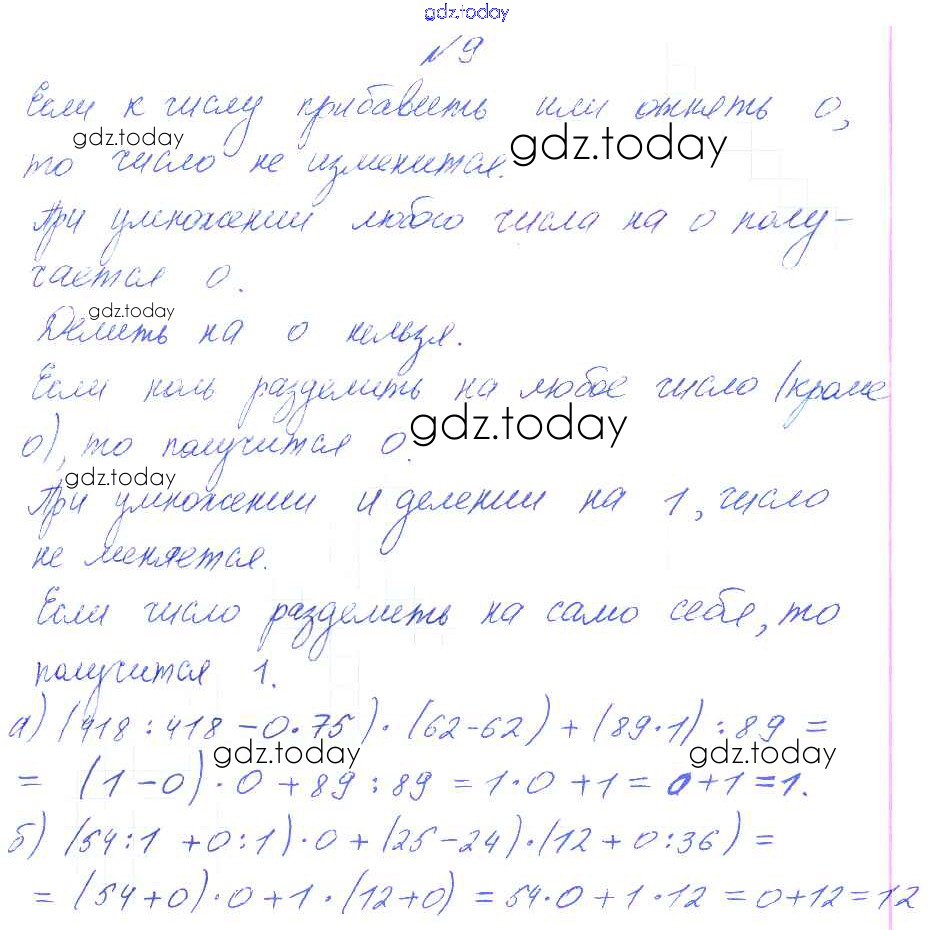 gdz.today
№9
Если к числу прибавить или отнять 0,
gdz.today gdz.today
то число не изменится.
При умножении любого числа на 0 полу-
чается 0.
gdz.today
Делить на 0 нельзя.
Если ноль разделить на любое число (кроме
0), то получится 0.
gdz.today
gdz.today
При умножении и делении на 1, число
не меняется.
Если число разделить на само себя, то
получится 1.
а) (418 : 418 - 0 · 75) · (62 - 62) + (89 · 1) : 89 =
gdz.today gdz.today
= (1 - 0) · 0 + 89 : 89 = 1 · 0 + 1 = 0 + 1 = 1.
б) (54 : 1 + 0 : 1) · 0 + (25 - 24) · (12 + 0 : 36) =
= (54 + 0) · 0 + 1 · (12 + 0) = 54 · 0 + 1 · 12 = 0 + 12 = 12